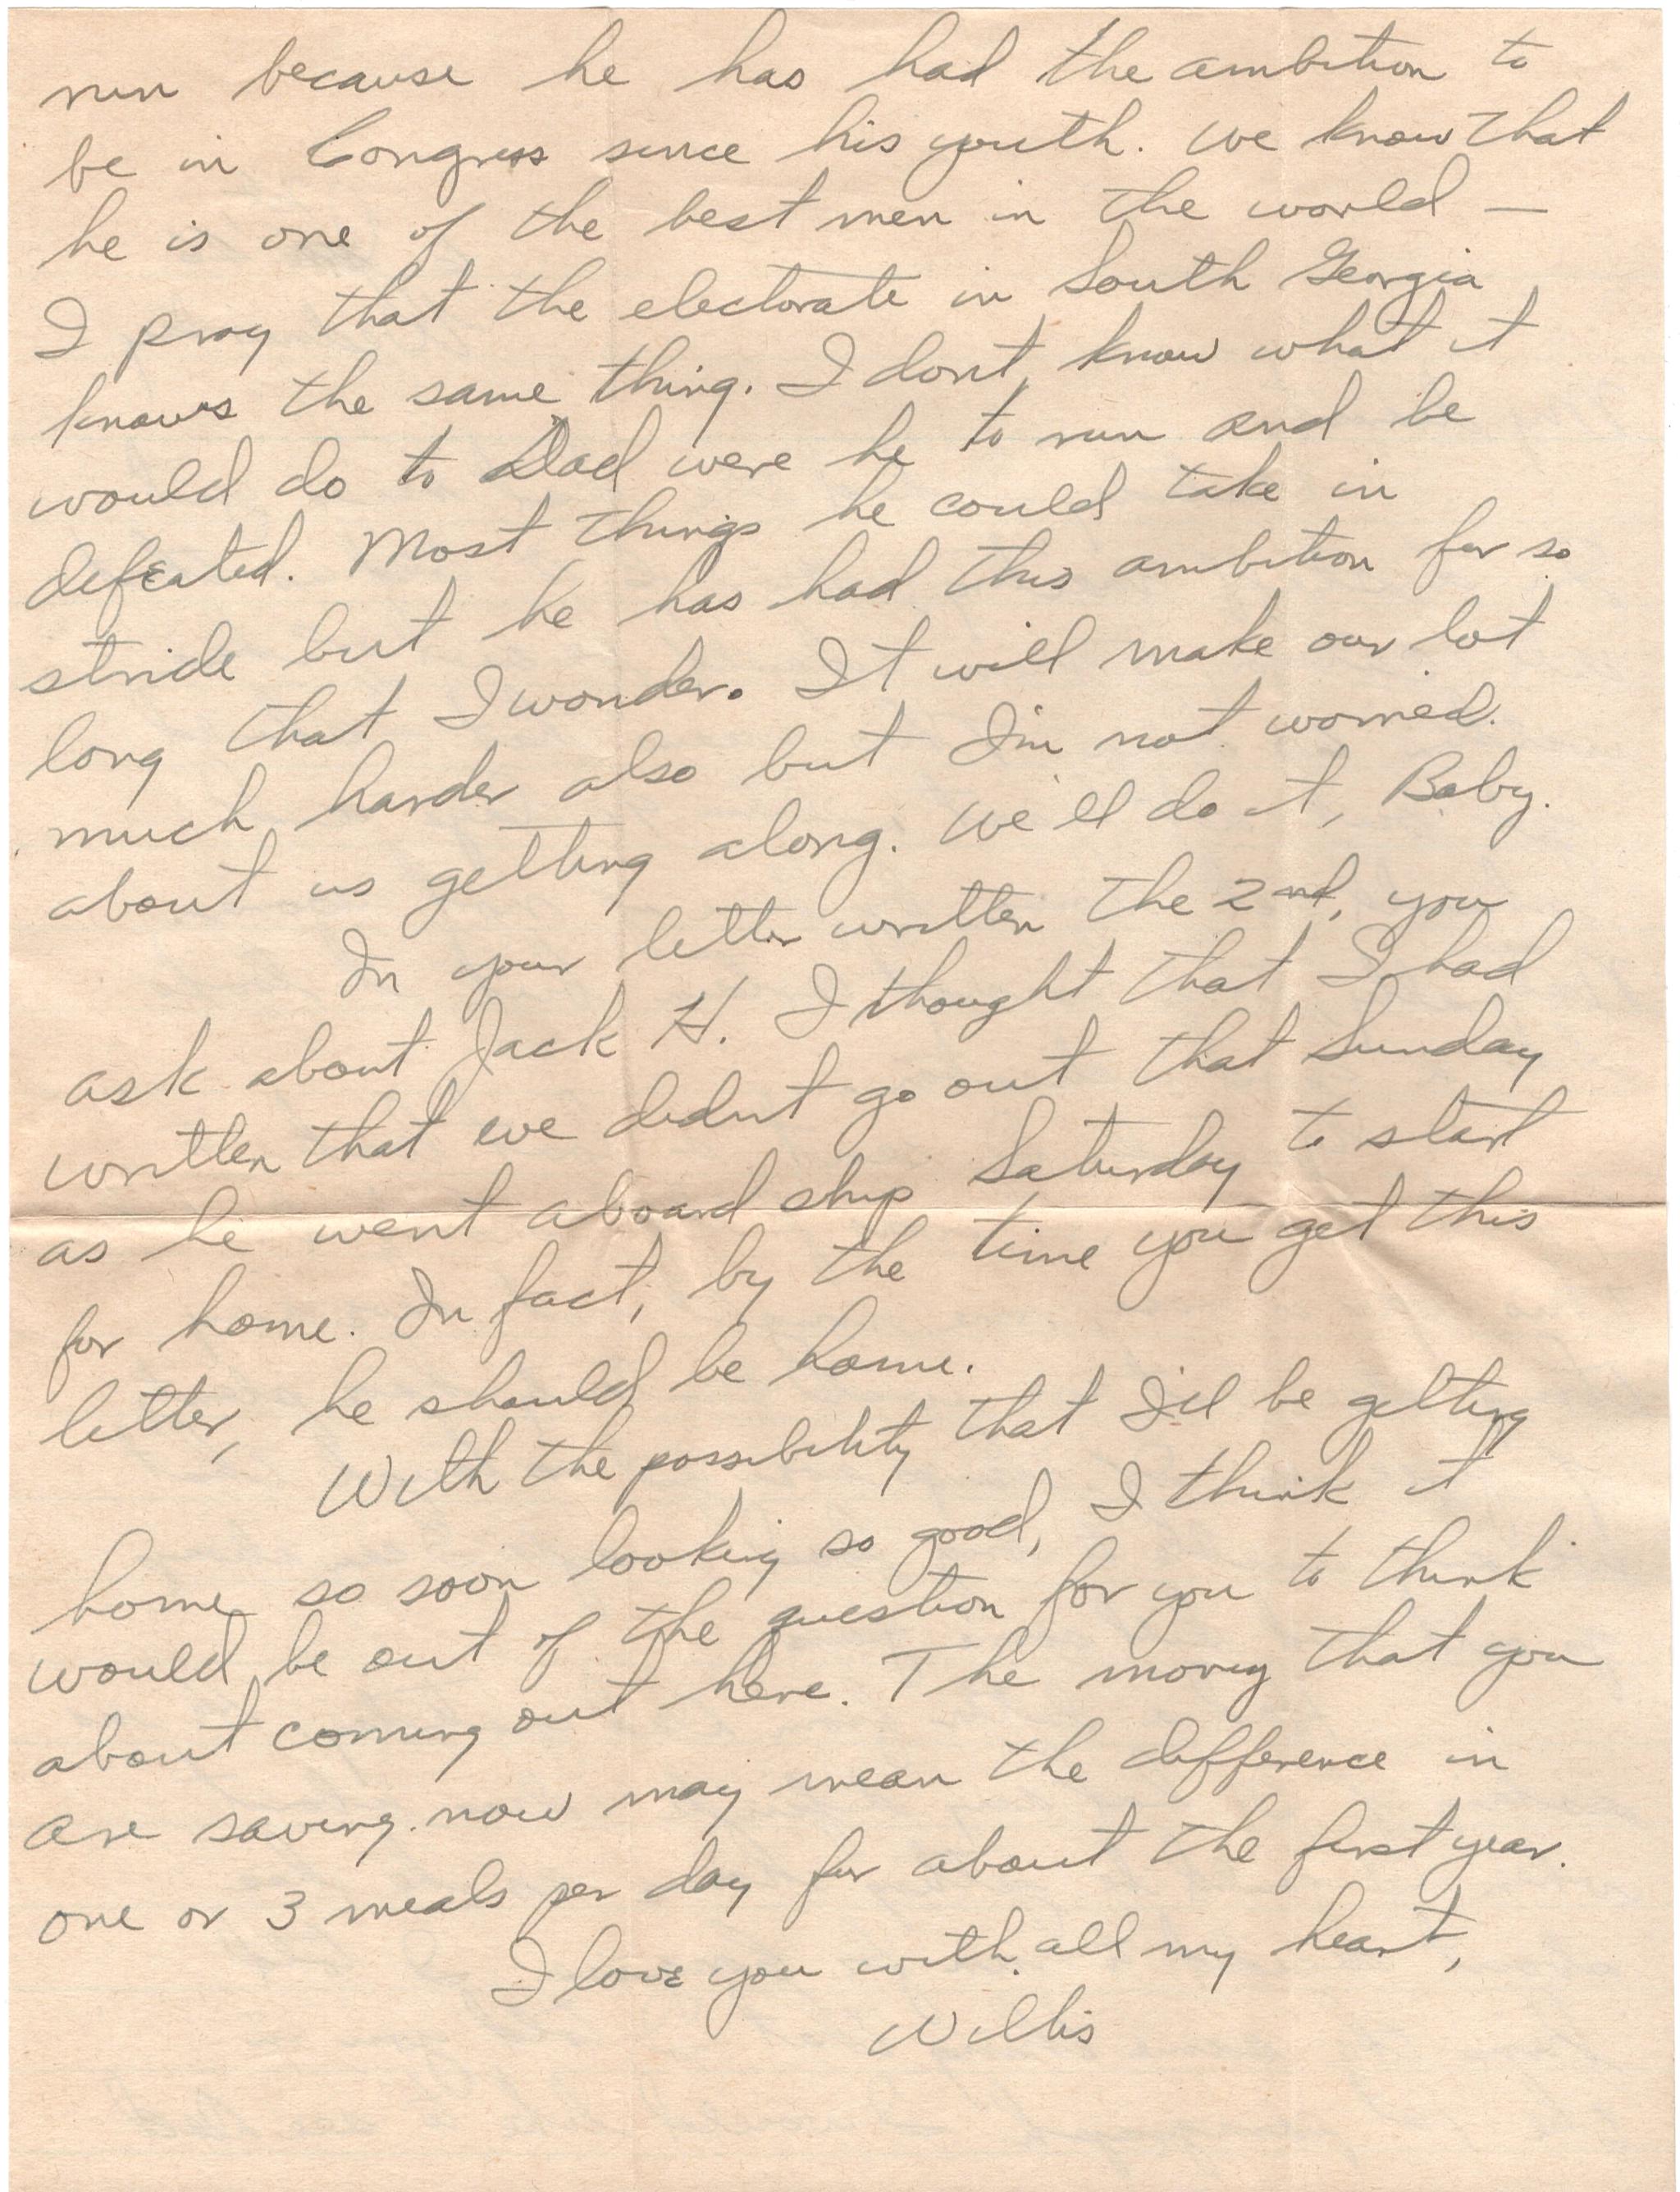 run because he has had the ambition to
be in Congress since his youth. We know that
he is one of the best men in the world —
I pray that the electorate in South Georgia
knows the same thing. I don't know what it
would do to Dad were he to run and be
defeated. Most things he could take in
stride but he has had this ambition for so
long that I wonder. It will make our lot
much harder also but I'm not worried.
about us getting along. We'll do it, Baby.
In your letter written the 2nd, you
ask about Jack H. I thought that I had
written that we didn't go out that Sunday
as he went aboard ship Saturday to start
for home. In fact, by the time you get this
letter, he should be home.
With the possibility that I'll be getting
home so soon looking so good, I think it
would be out of the question for you to think
about coming out here. The money that you
are saving now may mean the difference in
one or 3 meals per day for about the first year.
I love you with all my heart,
Willis